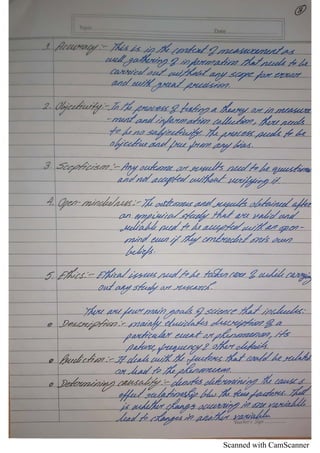 3
Topic
Date
1. Accuracy :- This is in the context of measurement as
well gathering of information that needs to be
carried out without any scope for error
and with great precision.
2. Objectivity :- In the process of testing a theory or in measure
-ment and information collection, there needs
to be no subjectivity. The process needs to be
objective and free from any bias.
3. Scepticism :- Any outcome or results need to be questioned
and not accepted without verifying it.
4. Open-mindedness :- The outcomes and results obtained after
an empirical study that are valid and
reliable need to be accepted with an open-
mind even if they contradict one's own
beliefs.
5. Ethics :- Ethical issues need to be taken care of while carrying
out any study or research.
There are four main goals of science that includes:
• Description :- mainly elucidates description of a
particular event or phenomenon, its
nature, frequency & other details.
• Prediction :- It deals with the factors that could be related
or lead to the phenomenon.
• Determining causality :- denotes determining the cause &
effect relationship b/w the two factors. That
is whether change occurring in one variable
lead to changes in another variable.
Teacher's Sign
Scanned with CamScanner